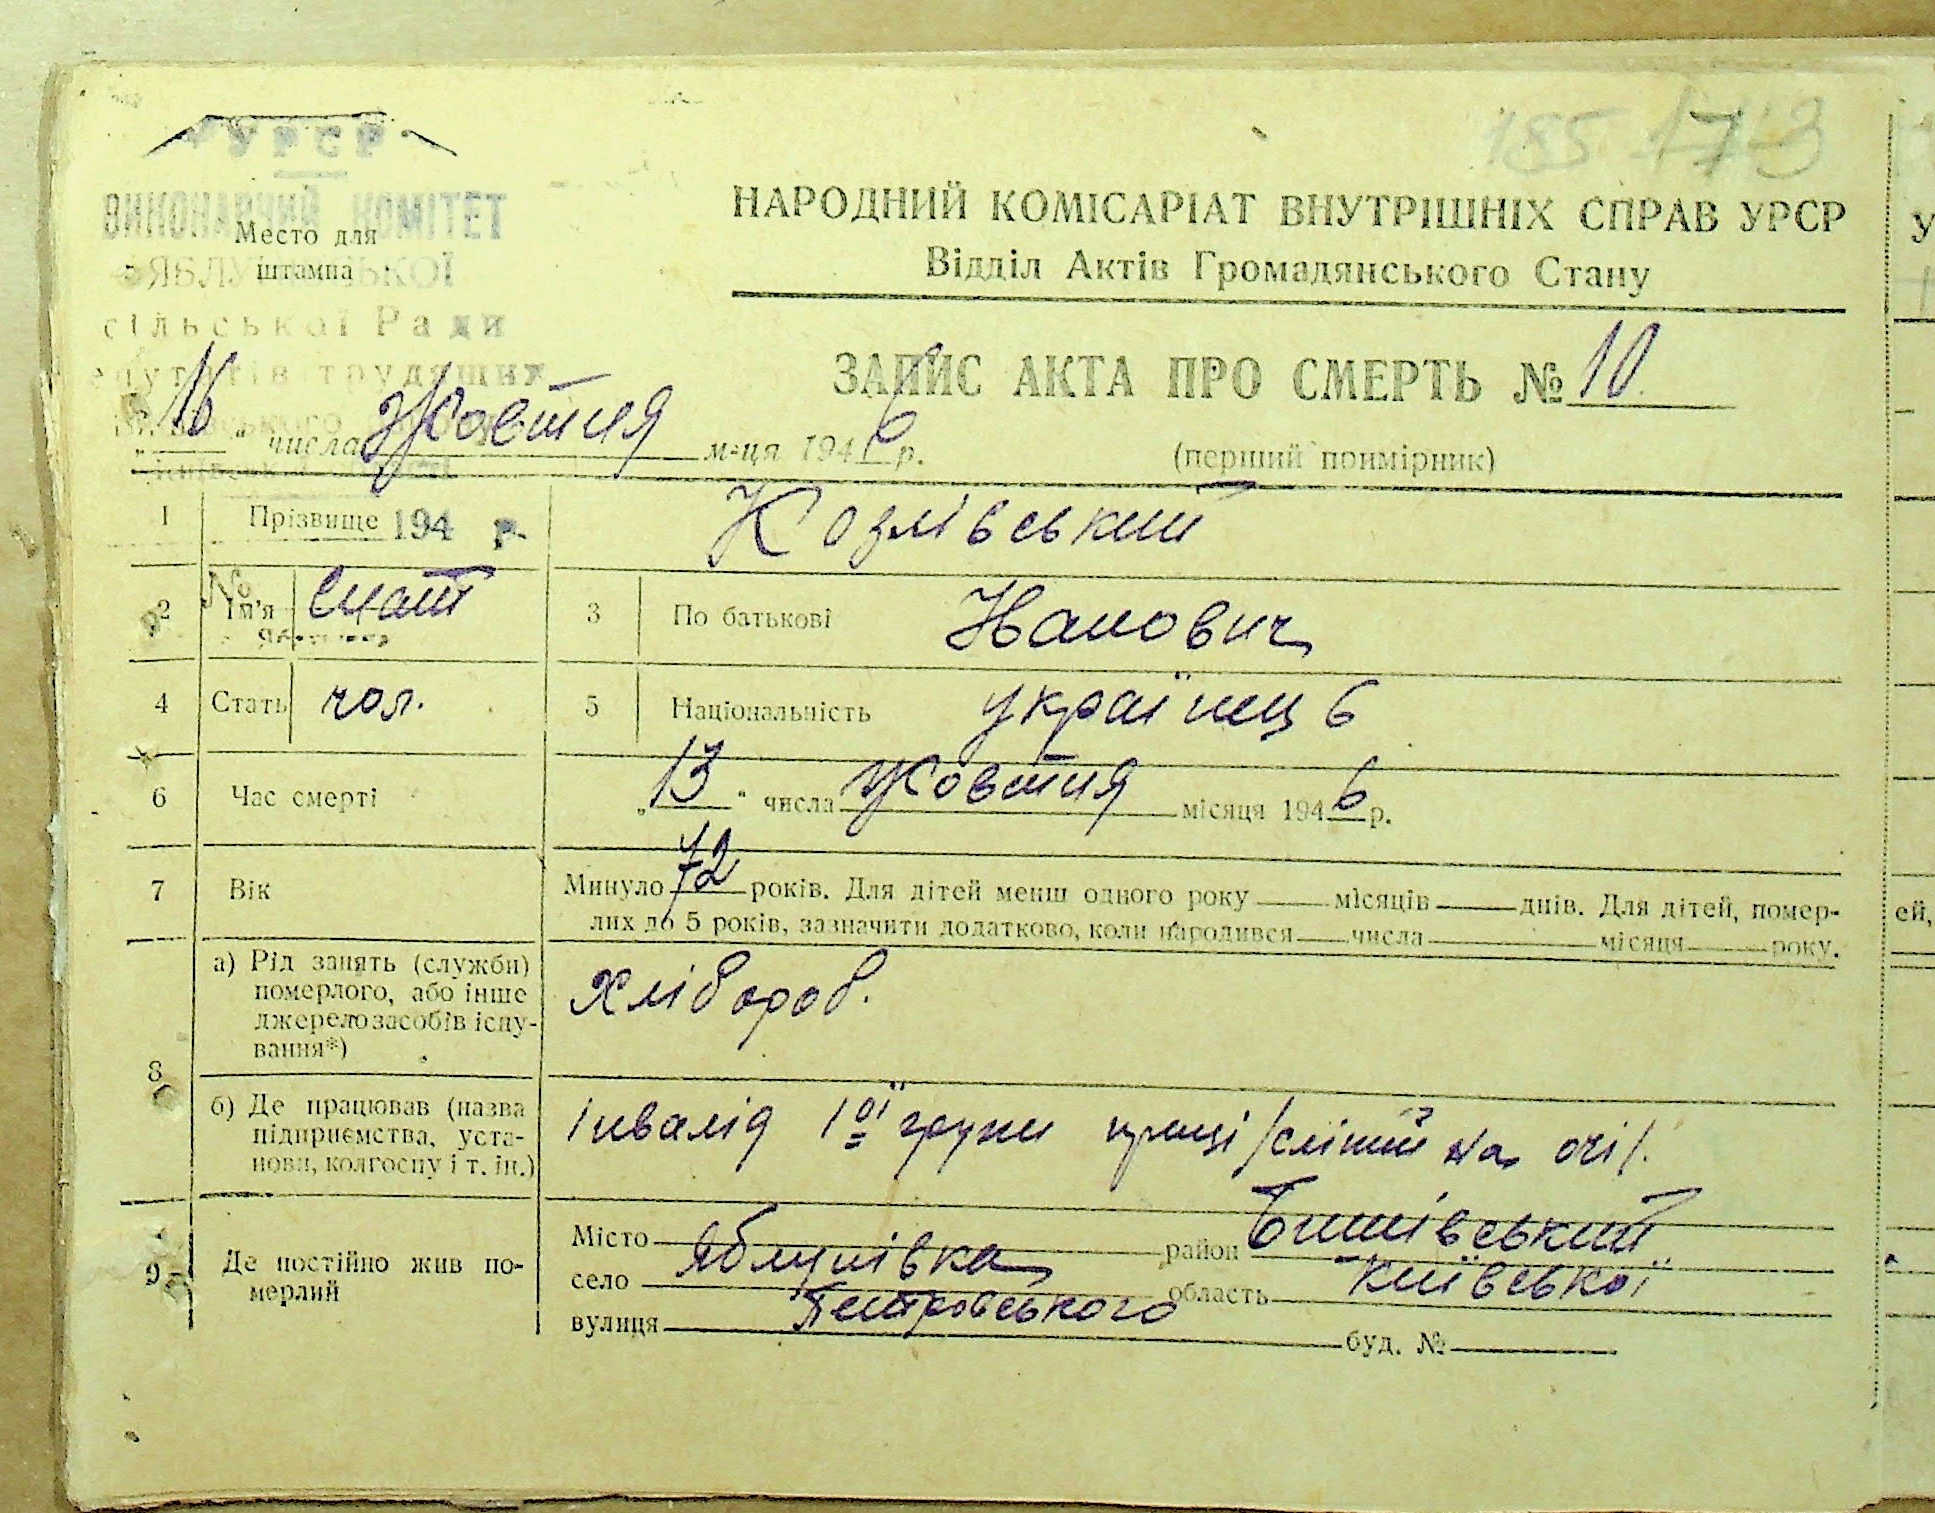 УРСР
185 173
ВИКОНАВЧИЙ КОМІТЕТ
Место для
штампа
сільської Ради
НАРОДНИЙ КОМІСАРІАТ ВНУТРІШНІХ СПРАВ УРСР
Відділ Актів Громадянського Стану
ЗАПИС АКТА ПРО СМЕРТЬ № 10
(перший примірник)
„16“ числа Жовтня м-ця 1946 р.
1 Прізвище 194 р. Козлівський
2 Ім'я Гнат 3 По батькові Іванович
4 Стать чол. 5 Національність українець
6 Час смерті „13“ числа Жовтня місяця 1946 р.
7 Вік Минуло 72 років. Для дітей менш одного року місяців днів. Для дітей, помер-
лих до 5 років, зазначити додатково, коли народився числа місяця року.
8 а) Рід занять (служби)
померлого, або інше
джерело засобів існу-
вання*)
Хлібороб.
б) Де працював (назва
підприємства, уста-
нови, колгоспу і т. ін.)
Інвалід 1ої групи праці /сліпий на очі/.
9 Де постійно жив по-
мерлий
Місто район Бишівський
село Яблунівка область Київської
вулиця Петровського буд. №